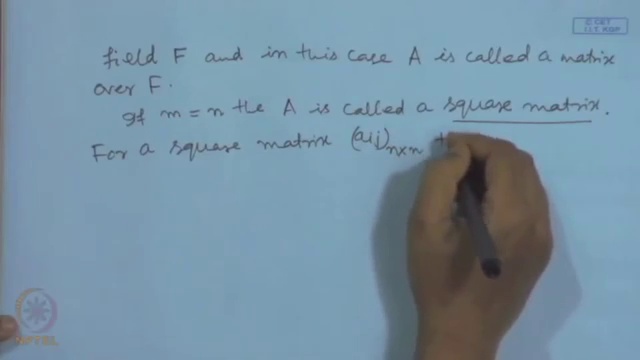 © CET
I.I.T. KGP
field F and in this case A is called a matrix
over F.
If m = n the A is called a square matrix.
For a square matrix (aij)n×n
NPTEL